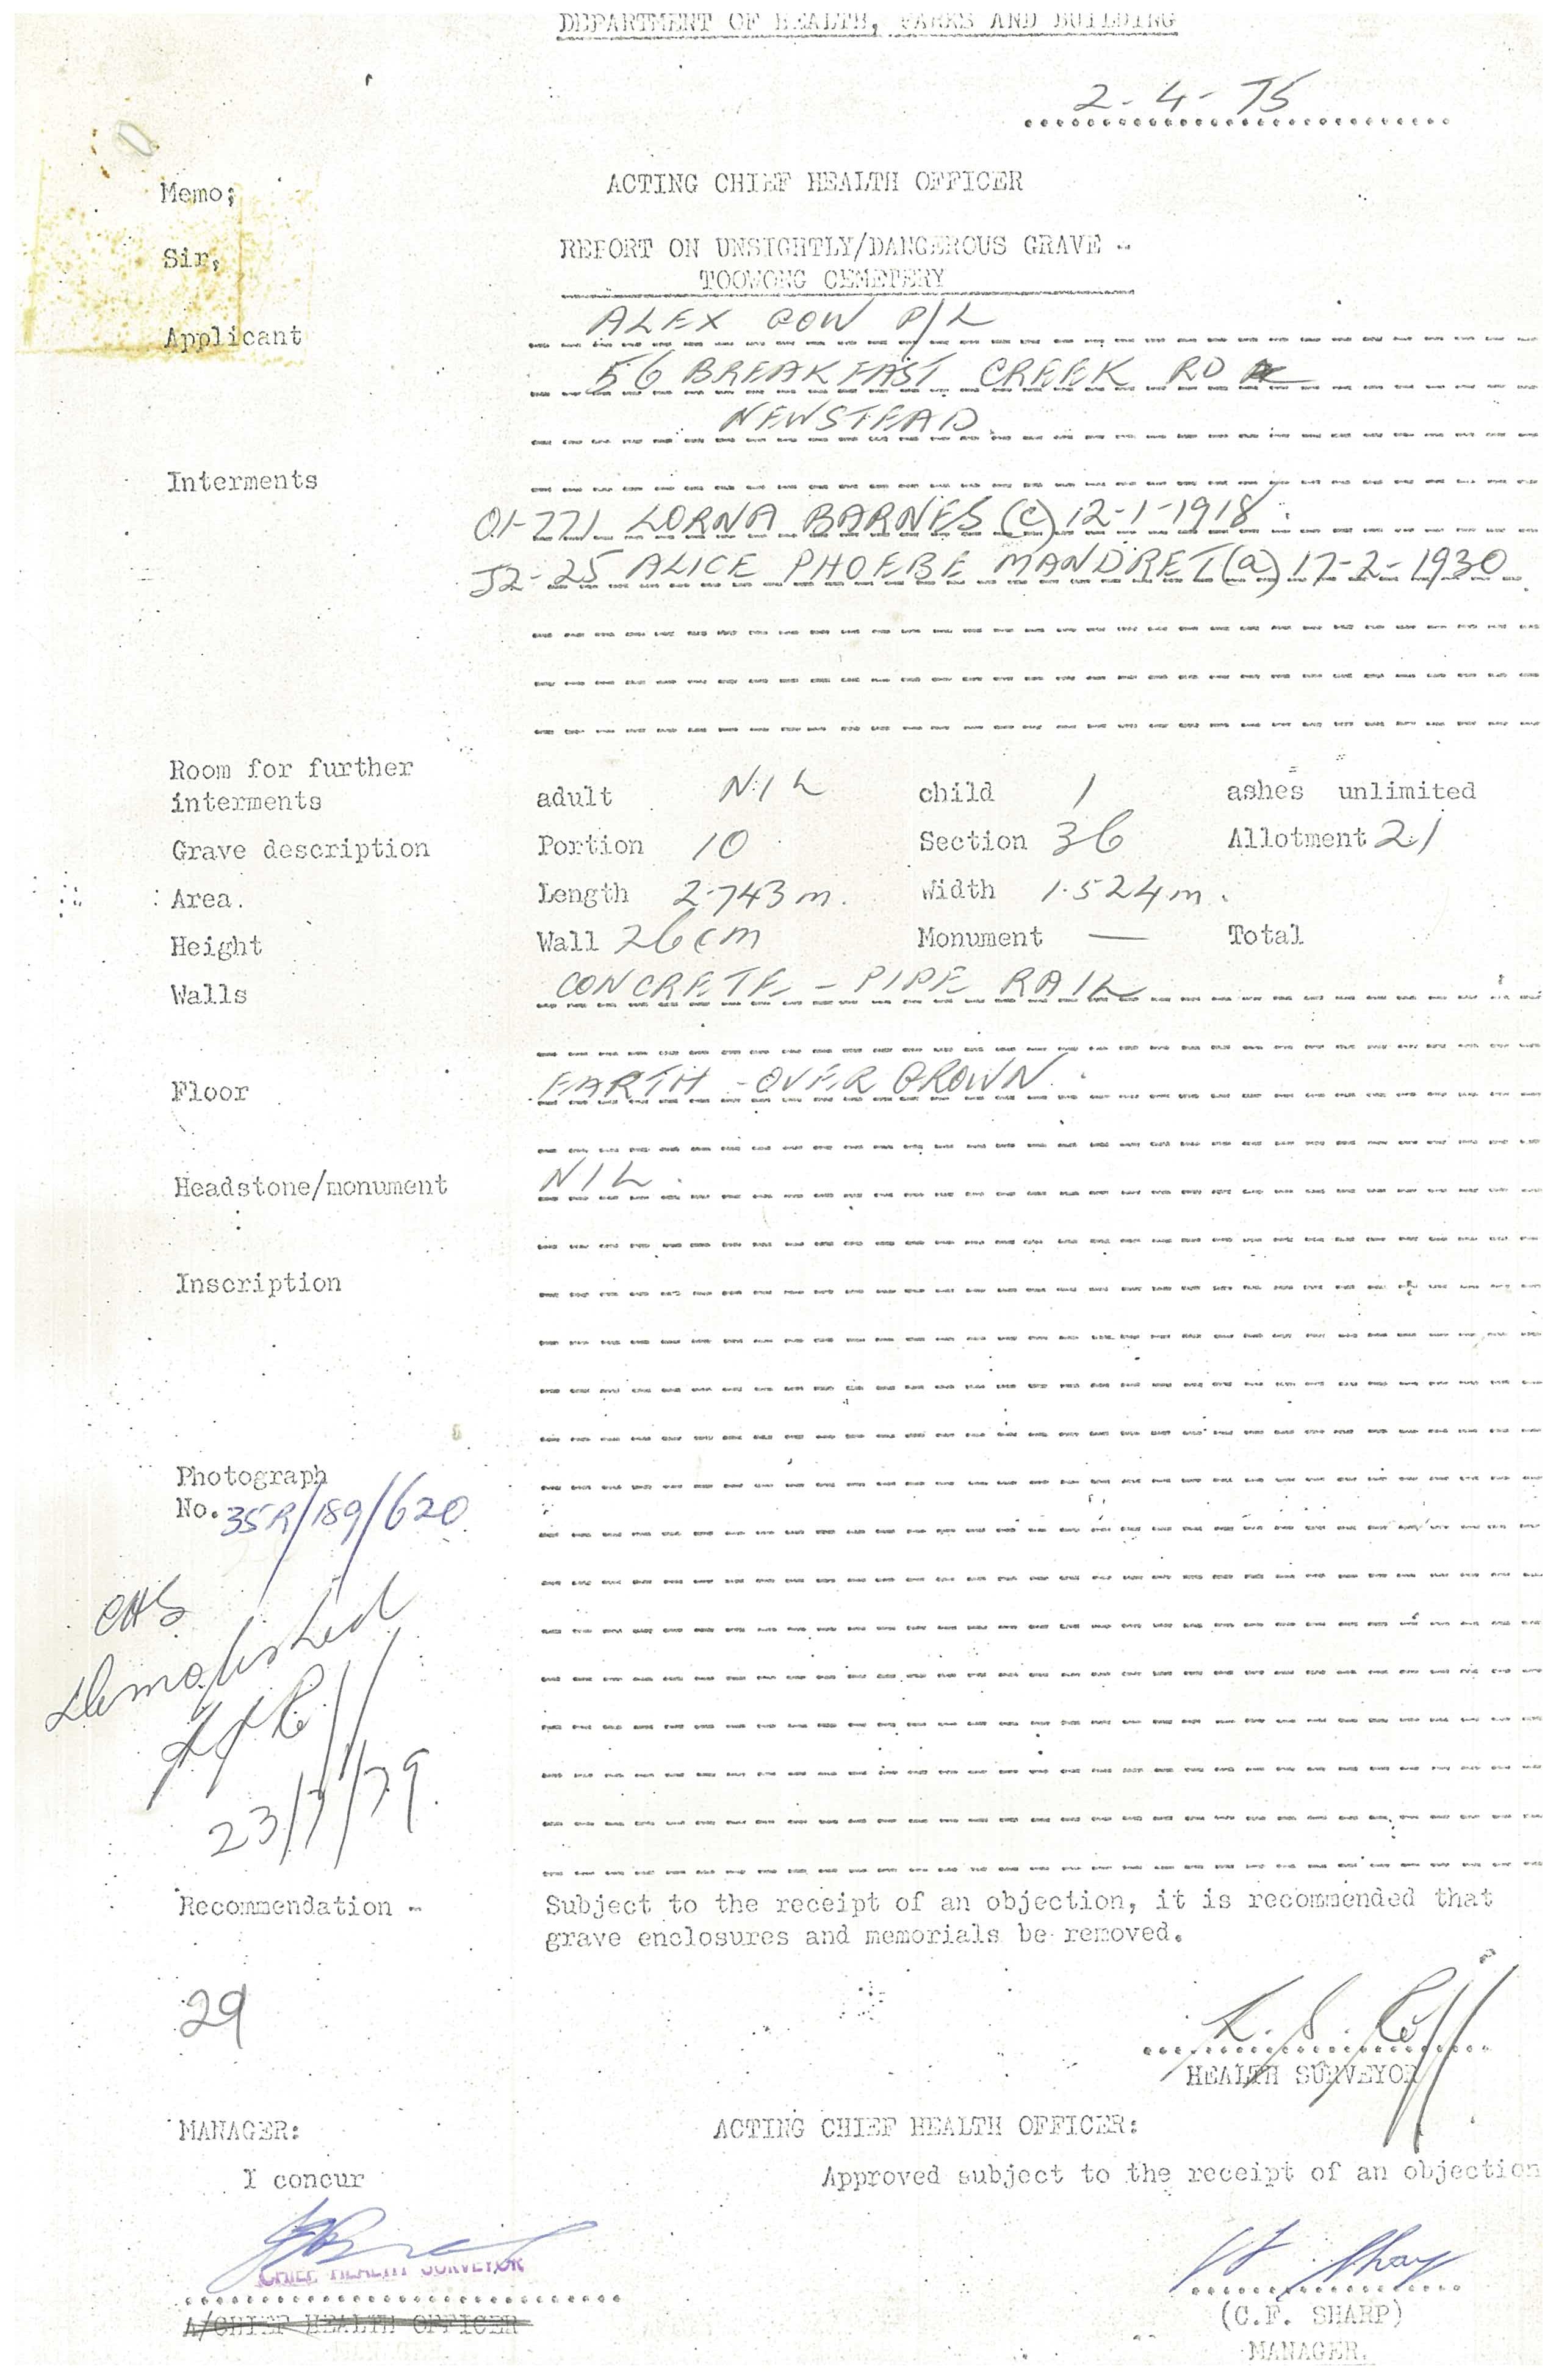 DEPARTMENT OF HEALTH, PARKS AND BUILDING
2-4-75
Memo; ACTING CHIEF HEALTH OFFICER
Sir, REPORT ON UNSIGHTLY/DANGEROUS GRAVE -
TOOWONG CEMETERY
Applicant ALEX GOW P/L
56 BREAKFAST CREEK RD
NEWSTEAD
Interments
01-771 LORNA BARNES (c) 12-1-1918
J2-25 ALICE PHOEBE MANDRET (a) 17-2-1930
Room for further
interments adult NIL child 1 ashes unlimited
Grave description Portion 10 Section 36 Allotment 21
Area. Length 2.743 m. Width 1.524 m.
Height Wall 26cm Monument — Total
Walls CONCRETE - PIPE RAIL
Floor EARTH - OVER GROWN.
Headstone/monument NIL.
Inscription
Photograph
No. 35R/189/620
CHS
Demolished
23/7/79.
Recommendation - Subject to the receipt of an objection, it is recommended that
grave enclosures and memorials be removed.
29
HEALTH SURVEYOR
MANAGER: ACTING CHIEF HEALTH OFFICER:
I concur Approved subject to the receipt of an objection
CHIEF HEALTH SURVEYOR
A/CHIEF HEALTH OFFICER
(C.F. SHARP)
MANAGER.